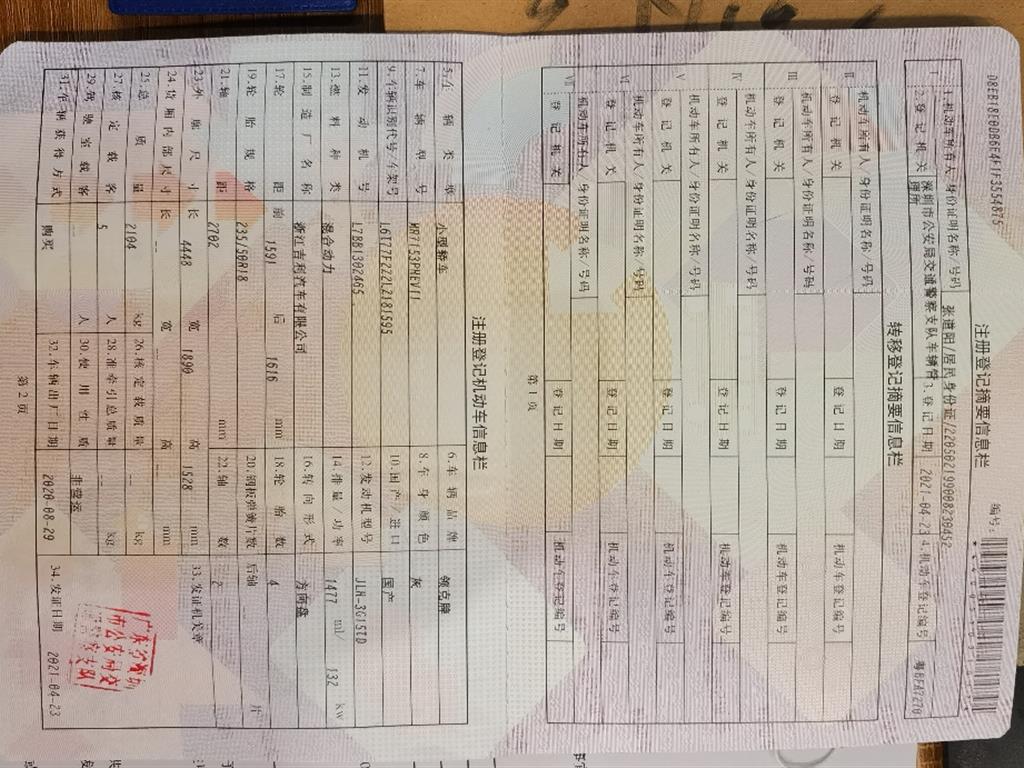 注册登记摘要信息栏
编号:
1.机动车所有人/身份证明名称/号码 张道阳/居民身份证/220502199008230452
2.登记机关 深圳市公安局交通警察支队车辆管理所 3.登记日期 2021-04-23 4.机动车登记编号 粤BFA7270
转移登记摘要信息栏
II 机动车所有人/身份证明名称/号码
登记机关 登记日期 机动车登记编号
III 机动车所有人/身份证明名称/号码
登记机关 登记日期 机动车登记编号
IV 机动车所有人/身份证明名称/号码
登记机关 登记日期 机动车登记编号
V 机动车所有人/身份证明名称/号码
登记机关 登记日期 机动车登记编号
VI 机动车所有人/身份证明名称/号码
登记机关 登记日期 机动车登记编号
VII 机动车所有人/身份证明名称/号码
登记机关 登记日期 机动车登记编号
第1页
注册登记机动车信息栏
5.车辆类型 小型轿车 6.车辆品牌 领克牌
7.车辆型号 8.车身颜色 灰
9.车辆识别代号/车架号 L6T77F2Z2LZ181595 10.国产/进口 国产
11.发动机号 L7BB1302465 12.发动机型号 JLH-3G15TD
13.燃料种类 混合动力 14.排量/功率 1477 ml/ 132 kw
15.制造厂名称 浙江吉利汽车有限公司 16.转向形式 方向盘
17.轮距 前 1591 后 1616 mm 18.轮胎数 4
19.轮胎规格 235/50R18 20.钢板弹簧片数 后轴 -- 片
21.轴距 2702 mm 22.轴数 2
23.外廓尺寸 长 4448 宽 1890 高 1528 mm 33.发证机关章
24.货厢内部尺寸 长 -- 宽 -- 高 -- mm
25.总质量 2104 kg 26.核定载质量 -- kg
27.核定载客 5 人 28.准牵引总质量 -- kg
29.驾驶室载客 -- 人 30.使用性质 非营运
31.车辆获得方式 购买 32.车辆出厂日期 2020-08-29 34.发证日期 2021-04-23
第2页